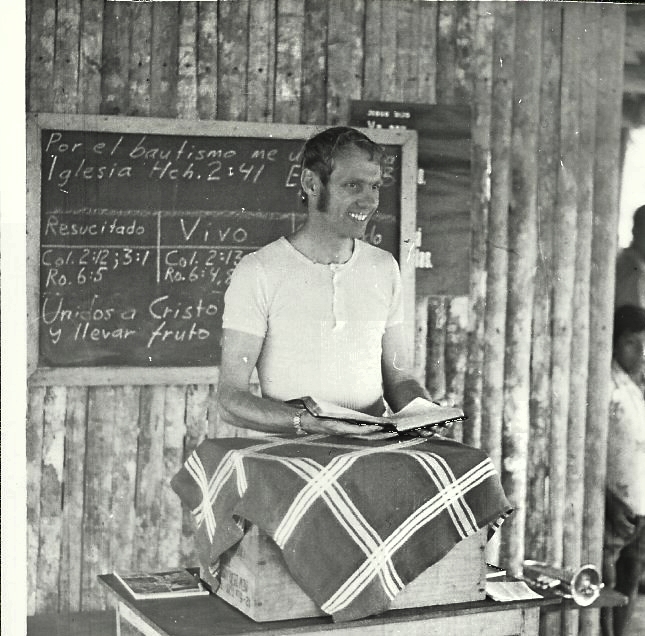 Por el bautismo me u
Iglesia Hch. 2:41
Resucitado
Vivo
Col. 2:12; 3:1
Col. 2:13
Ro. 6:5
Ro. 6:4,8
Unidos a Cristo
y llevar fruto